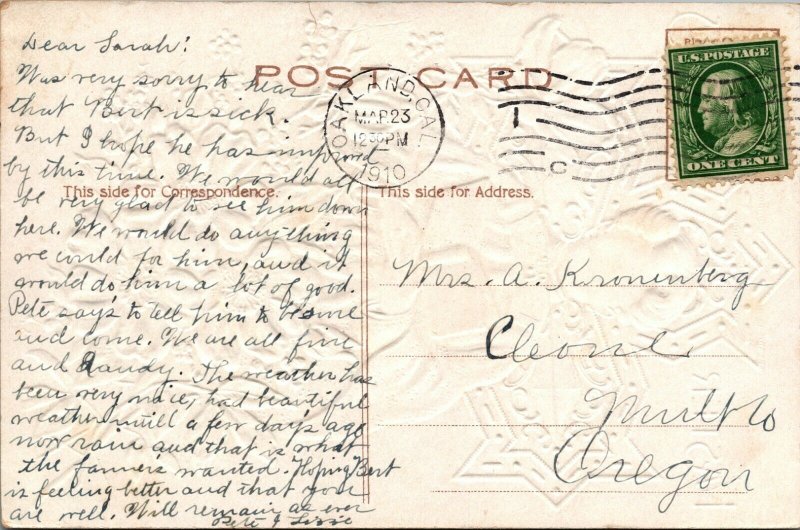 Dear Sarah:
Was very sorry to hear
that Bert is sick.
But I hope he has improved
by this time. We would all
be very glad to see him down
here. We would do anything
we could for him, and it
would do him a lot of good.
Pete say's to tell him to be sure
and come. We are all fine
and dandy. The weather has
been very nice, had beautiful
weather until a few day's ago
now rain and that is what
the farmers wanted. Hoping Bert
is feeling better and that you
are well. Will remain as ever
Pete & Lizzie
POST CARD
This side for Correspondence.
This side for Address.
OAKLAND, CAL.
MAR 23
12 30 PM
1910
1
C
U.S. POSTAGE
ONE CENT
Mrs. A. Kronenberg
Cleone
Mult Co
Oregon